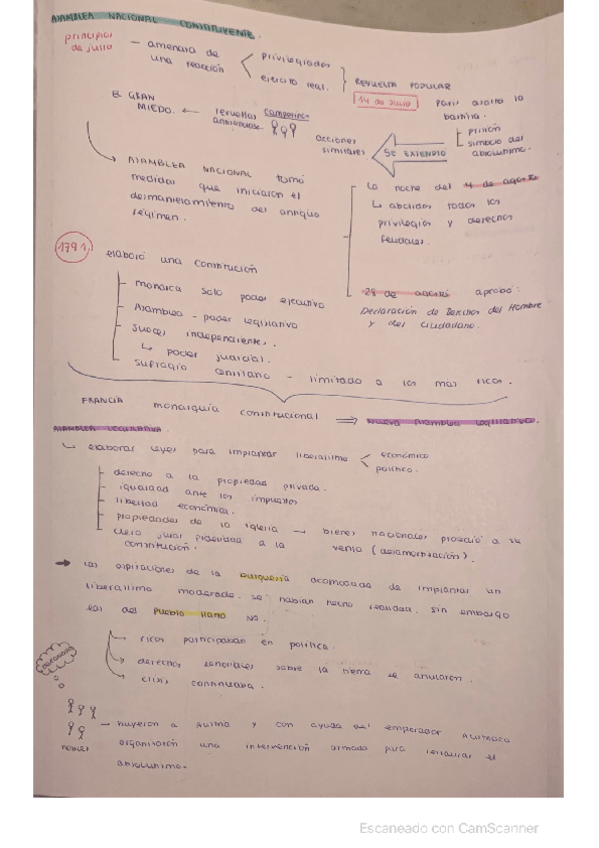 ASAMBLEA NACIONAL CONSTITUYENTE.
principios de julio
- amenaza de una reacción
privilegiados
ejército real.
REVUELTA POPULAR
14 de Julio
París asaltó la bastilla.
prisión
símbolo del absolutismo.
SE EXTENDIO
acciones similares
revueltas campesinas
antiseñoriales
EL GRAN MIEDO.
ASAMBLEA NACIONAL tomó
medidas que iniciaron el
desmantelamiento del antiguo
régimen.
La noche del 4 de agosto
abolidos todos los
privilegios y derechos
feudales.
28 de agosto aprobó:
Declaración de Derechos del Hombre
y del ciudadano.
1791.
elaboró una constitución
monarca solo poder ejecutivo
Asamblea - poder legislativo
Jueces independientes.
poder judicial.
sufragio censitario - limitado a los mas ricos.
FRANCIA monarquía constitucional ⟹ nueva Asamblea legislativa.
ASAMBLEA LEGISLATIVA.
elaborar leyes para implantar liberalismo
económico
político.
derecho a la propiedad privada.
igualdad ante los impuestos
libertad económica.
propiedades de la iglesia → bienes nacionales procedió a su
venta (desamortización).
clero jurar fidelidad a la
constitución.
→ Las aspiraciones de la burguesía acomodada de implantar un
liberalismo moderado se habían hecho realidad. Sin embargo
las del pueblo llano no.
ricos participaban en política.
derechos señoriales sobre la tierra se anularon.
crisis continuaba.
NOBLES
- huyeron a Austria y con ayuda del emperador Austriaco
organizaron una intervención armada para restaurar el
absolutismo.
Escaneado con CamScanner